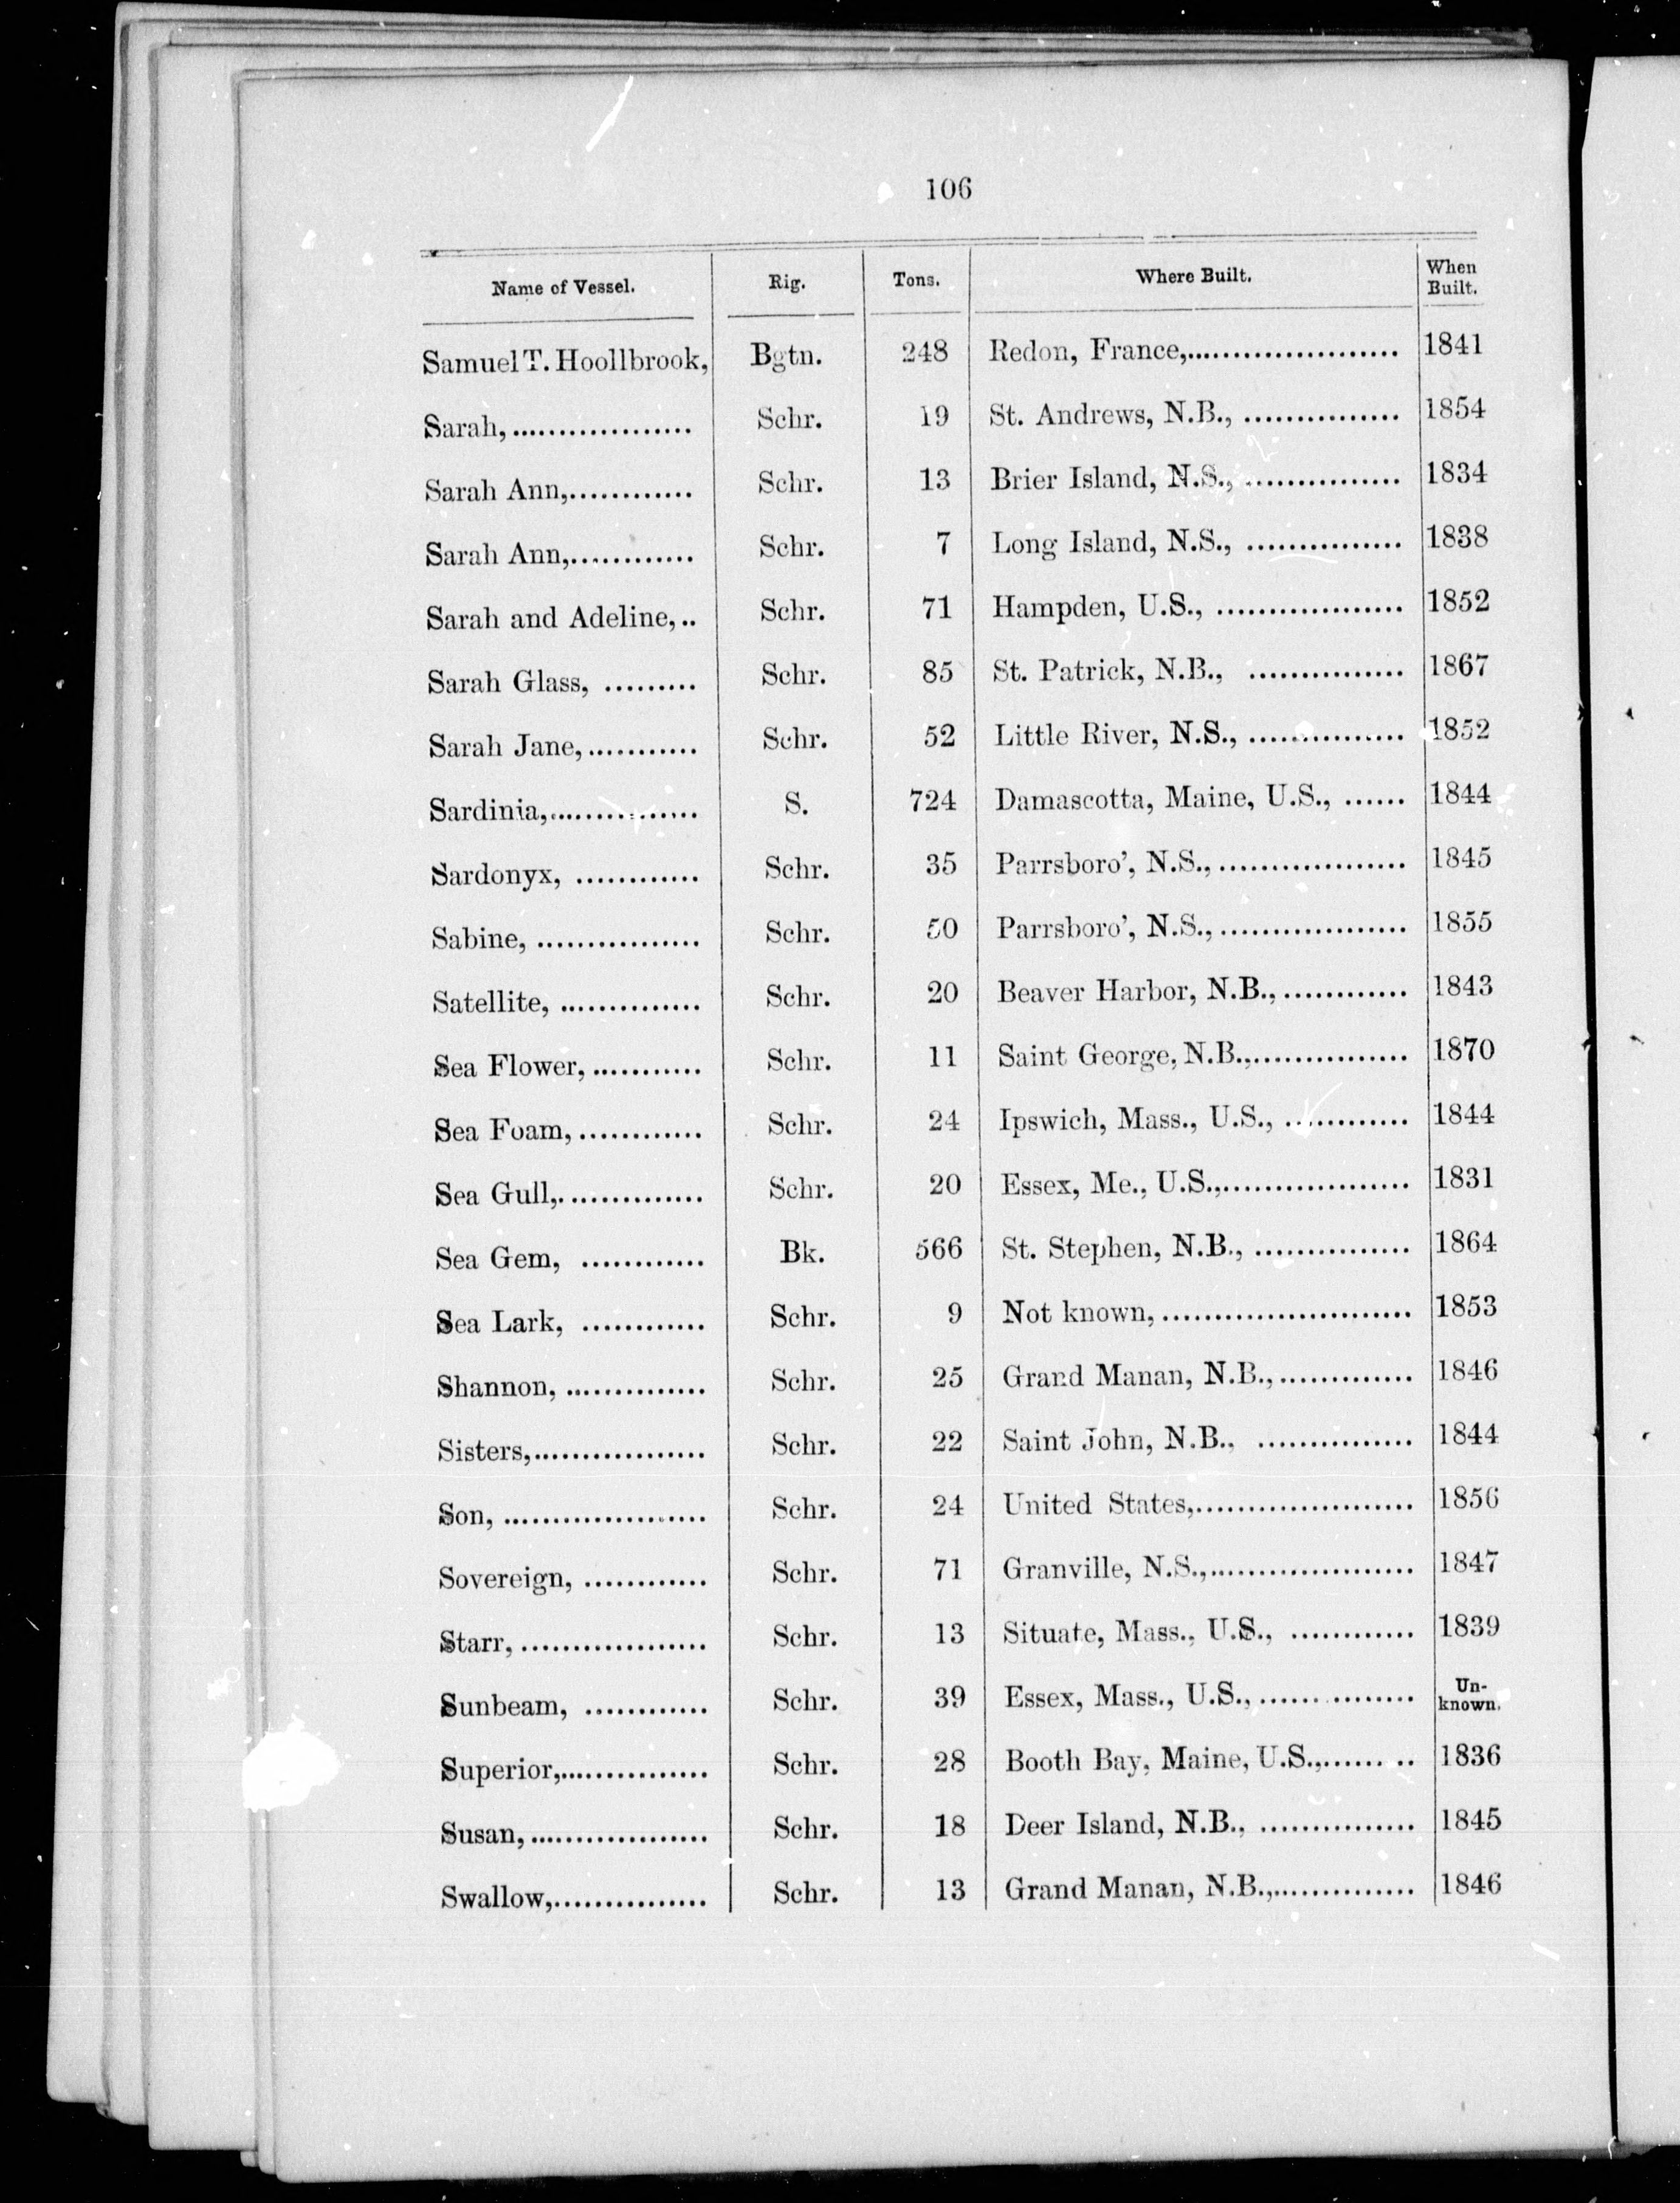 106
Name of Vessel. Rig. Tons. Where Built. When Built.
Samuel T. Hoollbrook, Bgtn. 248 Redon, France,..................... 1841
Sarah,.................. Schr. 19 St. Andrews, N.B., ............... 1854
Sarah Ann,............ Schr. 13 Brier Island, N.S., ............... 1834
Sarah Ann,............ Schr. 7 Long Island, N.S., ............... 1838
Sarah and Adeline,.. Schr. 71 Hampden, U.S., .................. 1852
Sarah Glass, ......... Schr. 85 St. Patrick, N.B., ............... 1867
Sarah Jane,........... Schr. 52 Little River, N.S., ............... 1852
Sardinia,............... S. 724 Damascotta, Maine, U.S., ...... 1844
Sardonyx, ............ Schr. 35 Parrsboro', N.S.,.................. 1845
Sabine, ................ Schr. 50 Parrsboro', N.S.,.................. 1855
Satellite, .............. Schr. 20 Beaver Harbor, N.B.,............ 1843
Sea Flower,........... Schr. 11 Saint George, N.B.,............... 1870
Sea Foam,............ Schr. 24 Ipswich, Mass., U.S., ............ 1844
Sea Gull,.............. Schr. 20 Essex, Me., U.S.,.................. 1831
Sea Gem, ............ Bk. 566 St. Stephen, N.B., ............... 1864
Sea Lark, ............ Schr. 9 Not known,........................ 1853
Shannon, .............. Schr. 25 Grand Manan, N.B.,............. 1846
Sisters,................. Schr. 22 Saint John, N.B., ............... 1844
Son, .................... Schr. 24 United States,..................... 1856
Sovereign, ............ Schr. 71 Granville, N.S.,.................... 1847
Starr,.................. Schr. 13 Situate, Mass., U.S., ............ 1839
Sunbeam, ............ Schr. 39 Essex, Mass., U.S.,............... Un-known.
Superior,............... Schr. 28 Booth Bay, Maine, U.S.,...... .. 1836
Susan,.................. Schr. 18 Deer Island, N.B., ............... 1845
Swallow,............... Schr. 13 Grand Manan, N.B.,.............. 1846